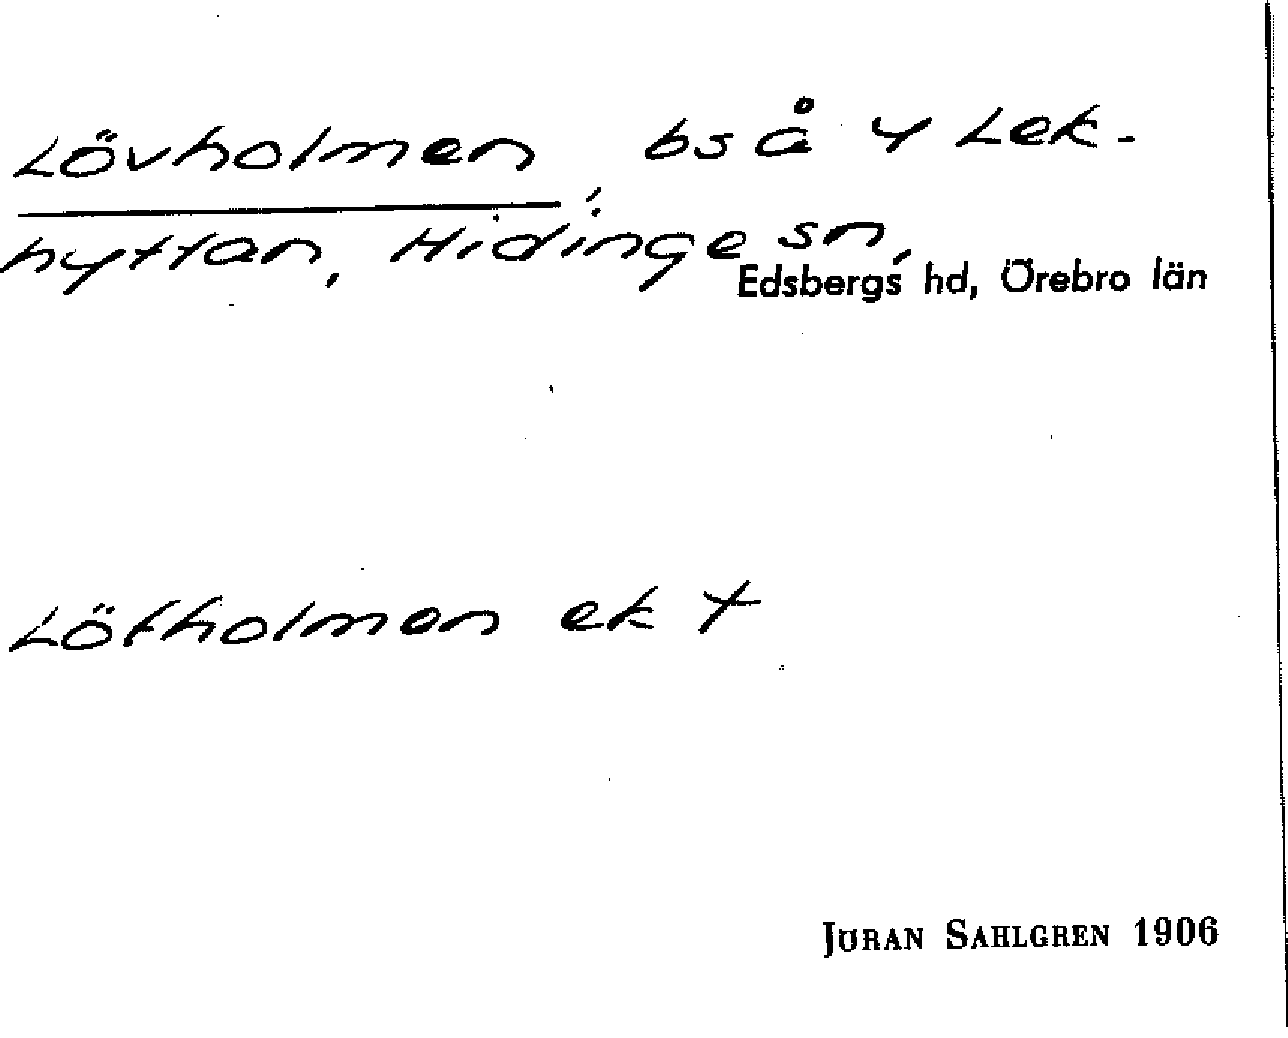 Lövholmen, bs å 4 Lek-
hyttan, Hidinge sn,
Edsbergs hd, Örebro län
Löfholmen ek +
JÖRAN SAHLGREN 1906